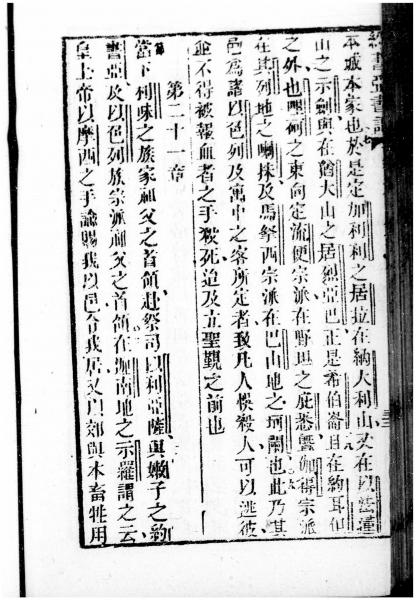 書亞書記
本城本家也於是定加利利之居拉在納大利山又在以法蓮
山之示劍與在猶大山之居烈亞巴正是希伯崙且在約耳但
之外也哩荷之東向定流便宗派在野坦之庇悉 加得宗派
在其列地之喇抹及馬拏西宗派在巴山地之坷闌也此乃其
邑為諸以色列及寓中之客所定者致凡人悞殺人可以逃彼
並不得被報血者之手殺死迨及立聖覲之前也
第二十一章
當下利味之族家祖父之首領赴祭司以利亞薩與嫩子之約
書亞及以色列族宗派祖父之首領在加南地之示羅謂之云
皇上帝以摩西之手諭賜我以邑令我居又以郊與本畜牲用